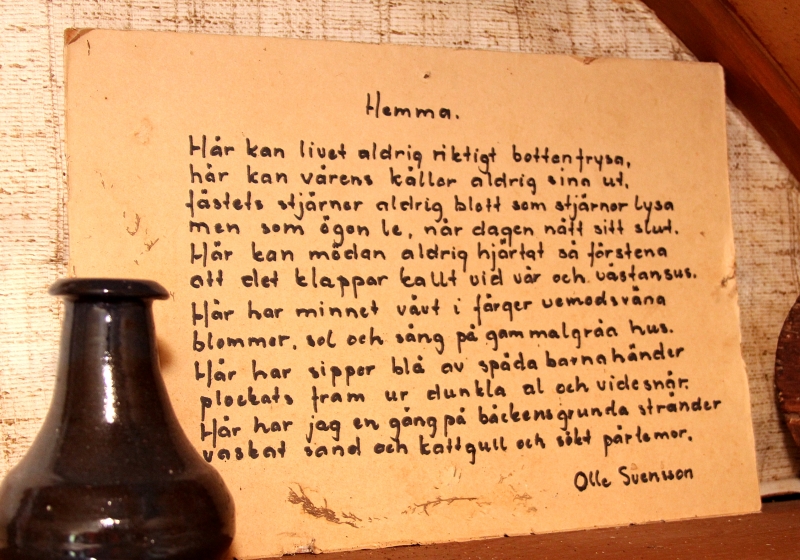 Hemma.
Här kan livet aldrig riktigt bottenfrysa,
här kan vårens källor aldrig sina ut,
fästets stjärnor aldrig blott som stjärnor lysa
men som ögon le, når dagen nått sitt slut.
Här kan mödan aldrig hjärtat så förstena
att det klappar kallt vid vår och västansus.
Här har minnet våvt i färger vemodsvåna
blommor, sol och sång på gammalgråa hus.
Här har sippor blå av späda barnahänder
plockats fram ur dunkla al och videsnår.
Här har jag en gång på bäckens grunda stränder
vaskat sand och kattgull och sökt pärlemor.
Olle Svensson